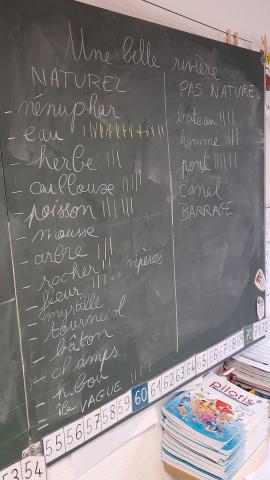 Une belle rivière
NATUREL
- nénuphar
- eau
- herbe
- caillouse
- poisson
- mousse
- arbre
- rocher
- fleur mpères
- myrtille
- tournesol
- bâton
- champs
- hibou
- île VAGUE
PAS NATUREL
bateau
homme
pont
canal
BARRAGE
53 54
55 56 57 58 59 60 61 62 63 64 65 66 67 68 69 70 71 72
pilotis